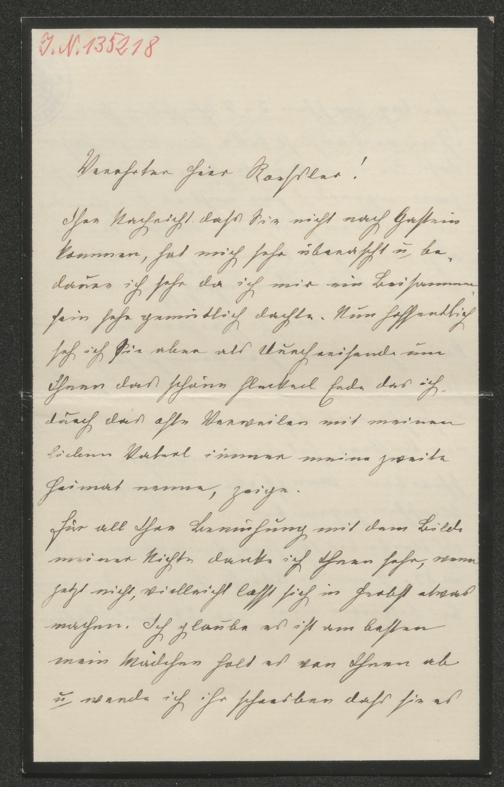 J.N. 135218
Verehrter Herr Roessler!
Ihre Nachricht dass Sie nicht nach Gastein
kommen, hat mich sehr überascht u. be-
dauer ich sehr da ich mir ein Beisammen
sein sehr gemütlich dachte. Nun hoffentlich
seh ich Sie aber als Durchreisende um
Ihnen das schöne Fleckerl Erde das ich
durch das ofte Verweilen mit meinen
lieben Vaterl immer meine zweite
Heimat nenne, zeige.
Für all Ihre Bemühung mit dem Bilde
meiner Nichte danke ich Ihnen sehr, wenn
jetzt nicht, vielleicht lasst sich im Herbst etwas
machen. Ich glaube es ist am besten
mein Mädchen holt es von Ihnen ab
u. werde ich ihr schreiben dass sie es